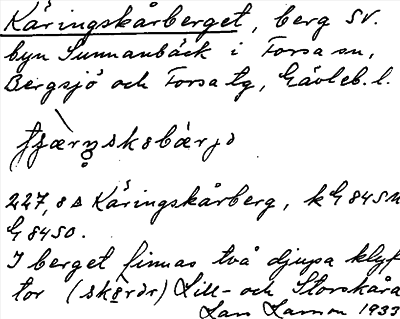 Käringskårberget, berg SV.
byn Sunnanbäck i Forsa sn,
Bergsjö och Forsa tg, Gävleb. l.
227,8 Δ Käringskårberg, k G 84 SN
G 84 SO.
I berget finnas två djupa klyf
tor (skårdr) Lill- och Storskåra
Lars Larson 1933